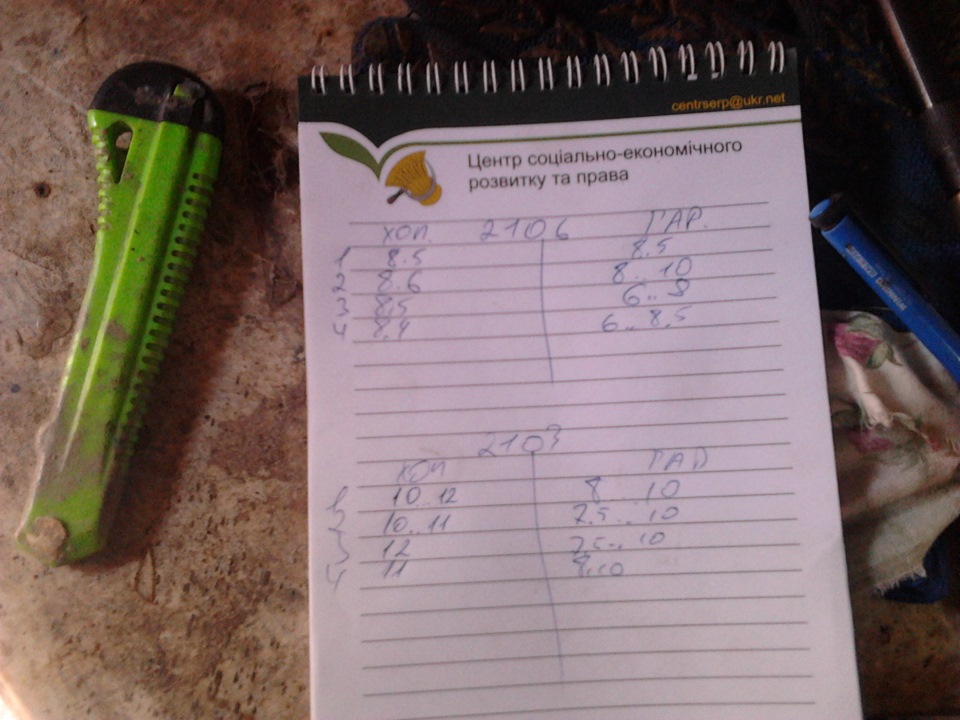 centrserp@ukr.net
Центр соціально-економічного
розвитку та права
ХОЛ. 2106 ГАР.
1 8.5 8.5
2 8.6 8.. 10
3 8.5 6.. 9
4 8.4 6.. 8.5
2103
ХОЛ ГАР
1 10..12 8 .. 10
2 10..11 7.5 .. 10
3 12 7.5.. 10
4 11 8..10